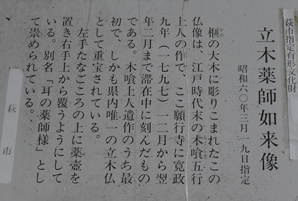 萩市指定有形文化財
立木薬師如来像
昭和六〇年三月一九日指定
榧の大木に彫りこまれたこの
仏像は、江戸時代末の木喰五行
上人の作で、ここ願行寺に寛政
九年(一七九七)一二月から翌
年二月まで滞在中に刻んだもの
である。木喰上人遺作のうち最
初で、しかも県内唯一の立木仏
として重宝されている。
左手たなごころの上に薬壺を
置き右手上から覆うようにして
いる。別名「耳の薬師様」とし
て崇められている。
萩市